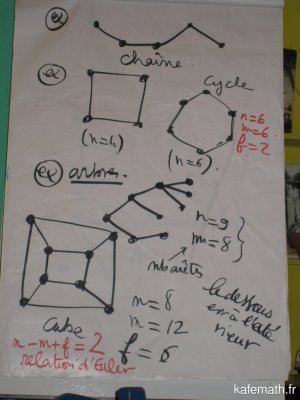 chaîne
ex
cycle
n=6
m=6
f=2
(n=4)
(n=6)
ex arbres.
n=9
m=8
nb arêtes
le dessous
est à l'exté
rieur
n=8
m=12
cube
f=6
n-m+f=2
relation d'Euler
kafemath.fr